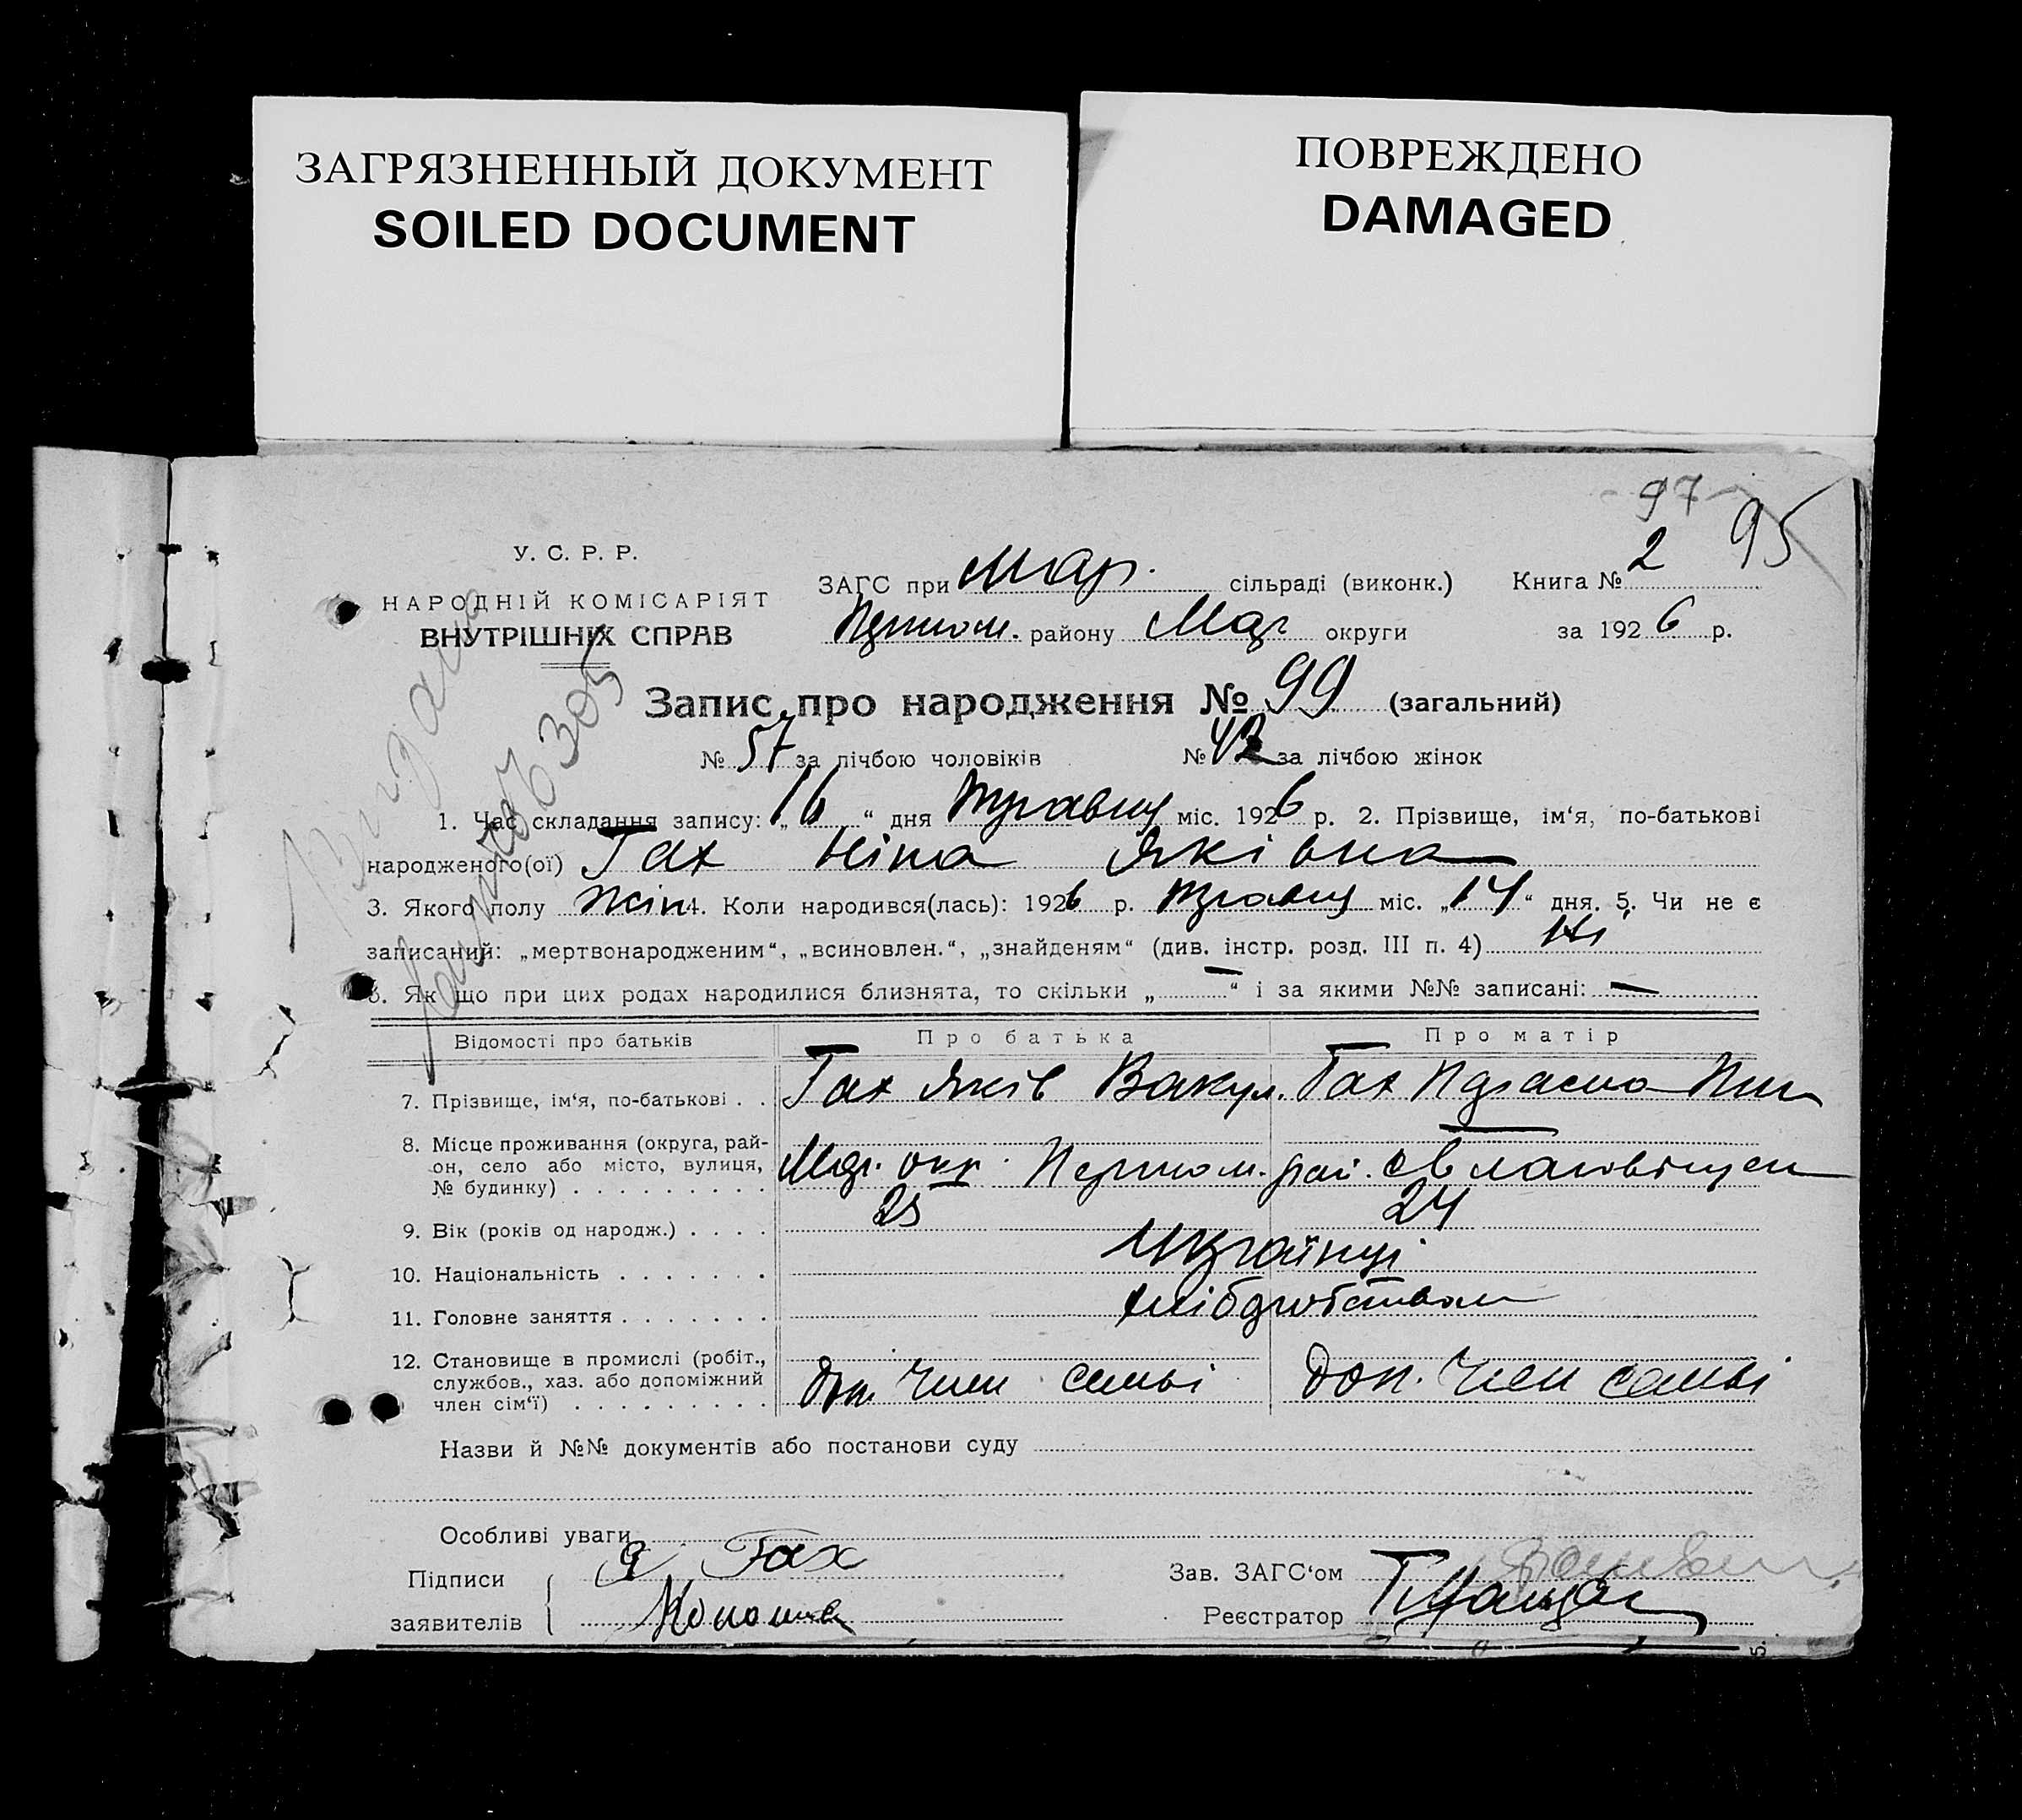 ЗАГРЯЗНЕННЫЙ ДОКУМЕНТ
SOILED DOCUMENT
ПОВРЕЖДЕНО
DAMAGED
97
95
У. С. Р. Р.
НАРОДНІЙ КОМІСАРІЯТ
ВНУТРІШНІХ СПРАВ
ЗАГС при Мар. сільраді (виконк.) Книга № 2
Першом. району Мар округи за 1926 р.
Запис про народження № 99 (загальний)
№ 57 за лічбою чоловіків № 42 за лічбою жінок
1. Час складання запису: „16“ дня травня міс. 1926 р. 2. Прізвище, ім‘я, по-батькові
народженого(ої) Гах Ніна Яківна
3. Якого полу жін 4. Коли народився(лась): 1926 р. травня міс. „14“ дня. 5. Чи не є
записаний: „мертвонародженим“, „всиновлен.“, „знайденям“ (див. інстр. розд. III п. 4) Ні
6. Як що при цих родах народилися близнята, то скільки „—“ і за якими №№ записані: —
Відомості про батьків Про батька Про матір
7. Прізвище, ім‘я, по-батькові . . Гах Яків Вакул. Гах
8. Місце проживання (округа, рай-
он, село або місто, вулиця, Мар. окр. Першом. рай.
№ будинку) . . . . . . . . .
9. Вік (років од народж.) . . . . 25 24
10. Національність . . . . . . . Українці
11. Головне заняття . . . . . . . хліборобством
12. Становище в промислі (робіт.,
службов., хаз. або допоміжний доп. член семьі доп. член семьі
член сім‘ї) . . . . . . . . .
Назви й №№ документів або постанови суду
Особливі уваги
Підписи Я Гах Зав. ЗАГС‘ом
заявителів Реєстратор